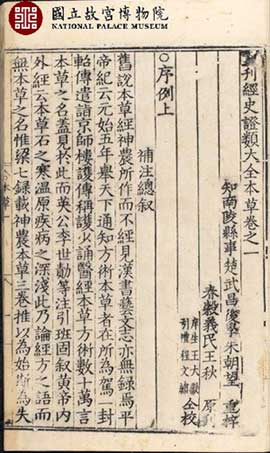 國立故宮博物院
NATIONAL PALACE MUSEUM
刊經史證類大全本草卷之一
知南陵縣事楚武昌後學朱朝望 重梓
春榖義民王秋 原刊
庠生王大獻
引禮程文繡
仝校
○序例上
補注總叙
舊說本草經神農所作而不經見漢書藝文志亦無録焉平
帝紀云元始五年舉天下通知方術本草者在所為駕一封
軺傳遣詣京師樓護傳稱護少誦醫經本草方術數十萬言
本草之名蓋見於此而英公李世勣等注引班固叙黄帝内
外經云本草石之寒温原疾病之深淺此乃論經方之語而
無本草之名惟梁七録載神農本草三卷推以為始斯為失